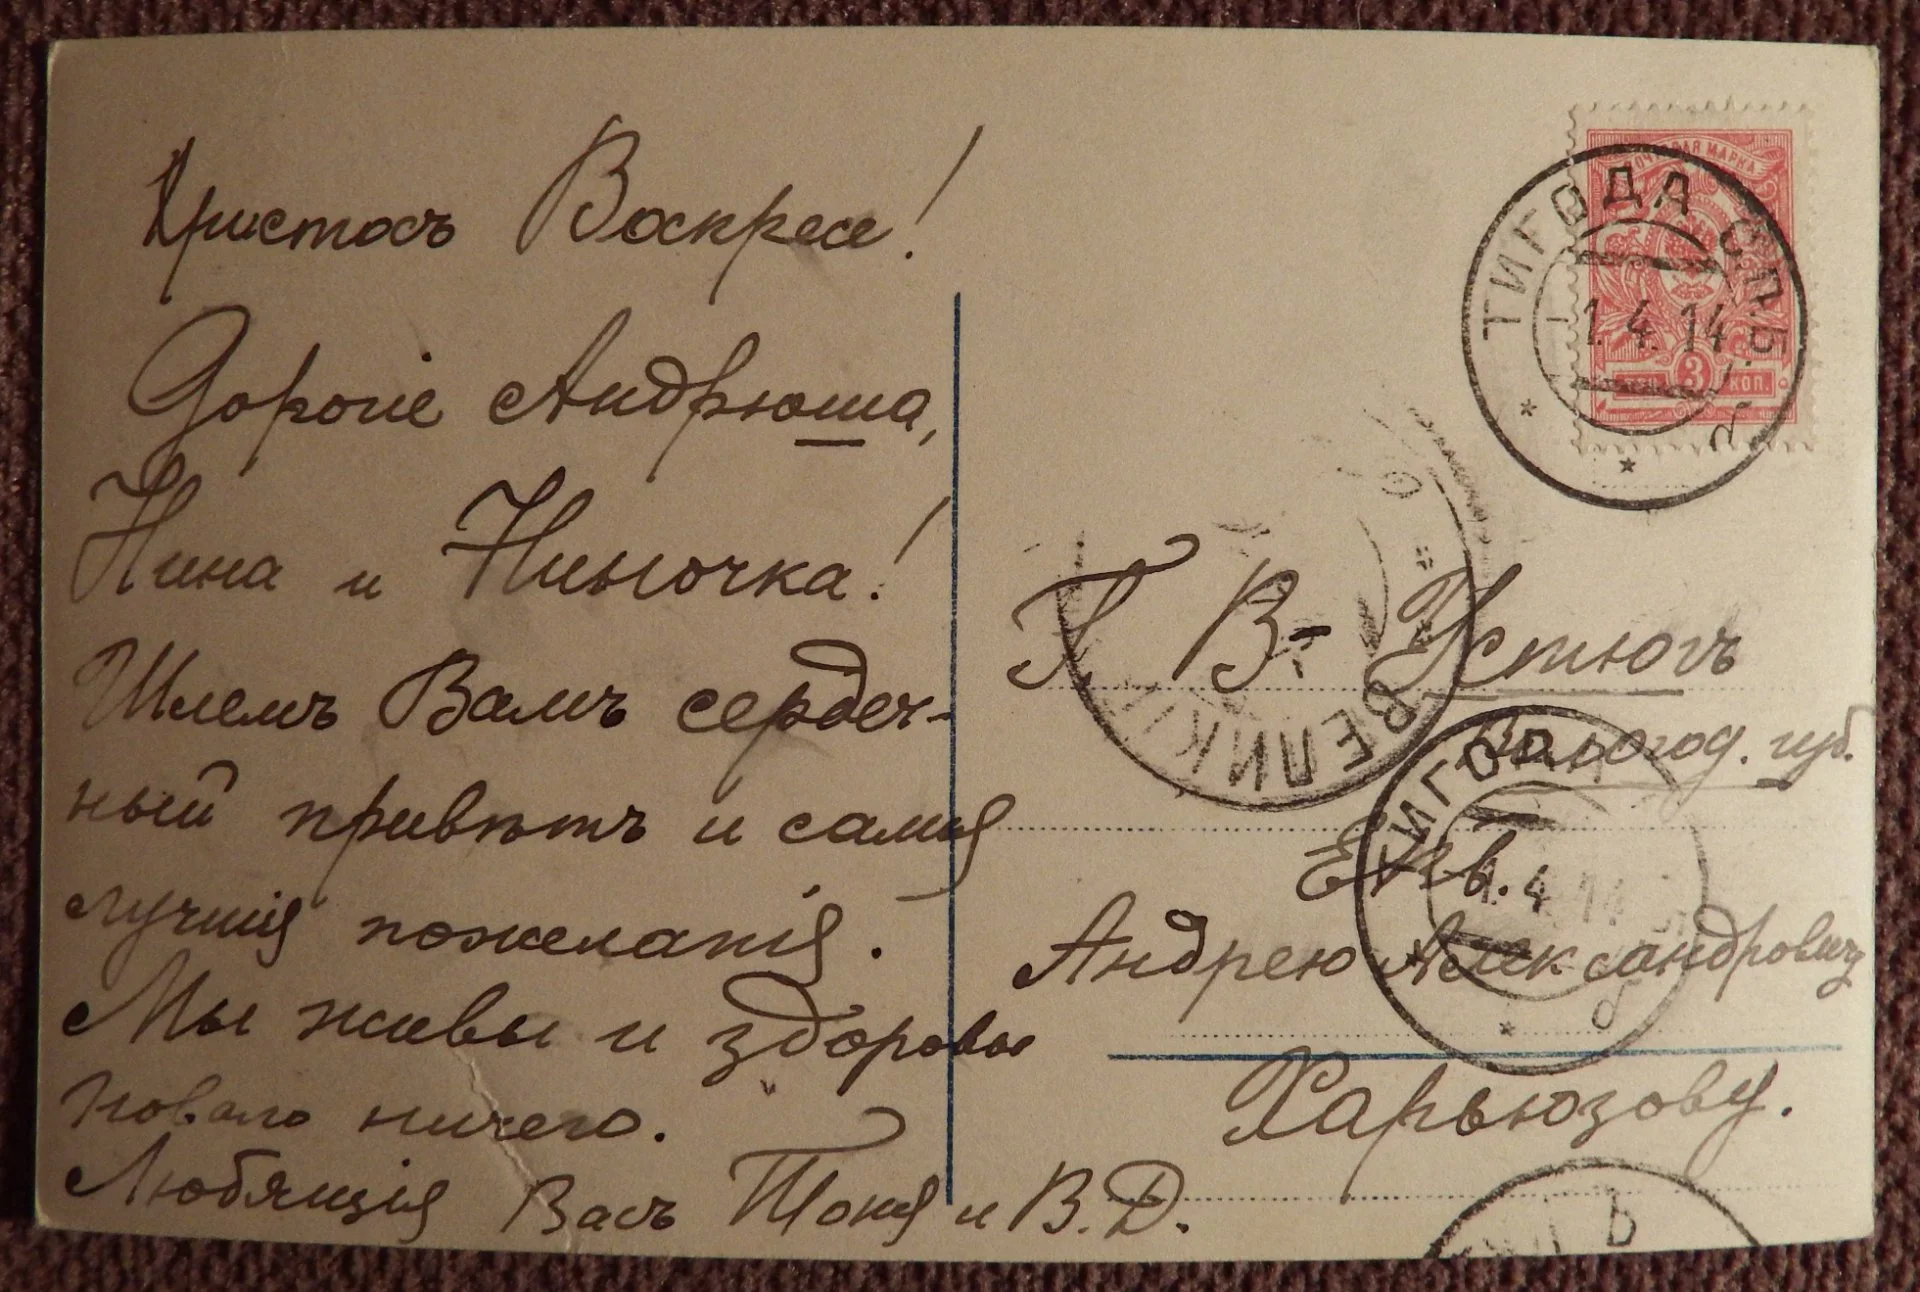 Христосъ Воскресе!
Дорогiе Андрюша,
Нина и Ниночка!
Шлемъ Вамъ сердеч-
ный привѣтъ и самыя
лучшiя пожеланiя.
Мы живы и здоровы
Новаго ничего.
Любящiя Васъ Тоня и В.Д.
ПОЧТОВАЯ МАРКА
3 КОП.
ТИГОДА С.П.Б.
1.4.14
б
ВЕЛИКIЙ
Г. В-Устюгъ
Вологод. губ.
ТИГОДА
1.4.14
б
Е. В.
Андрею Александровичу
Харьюзову.